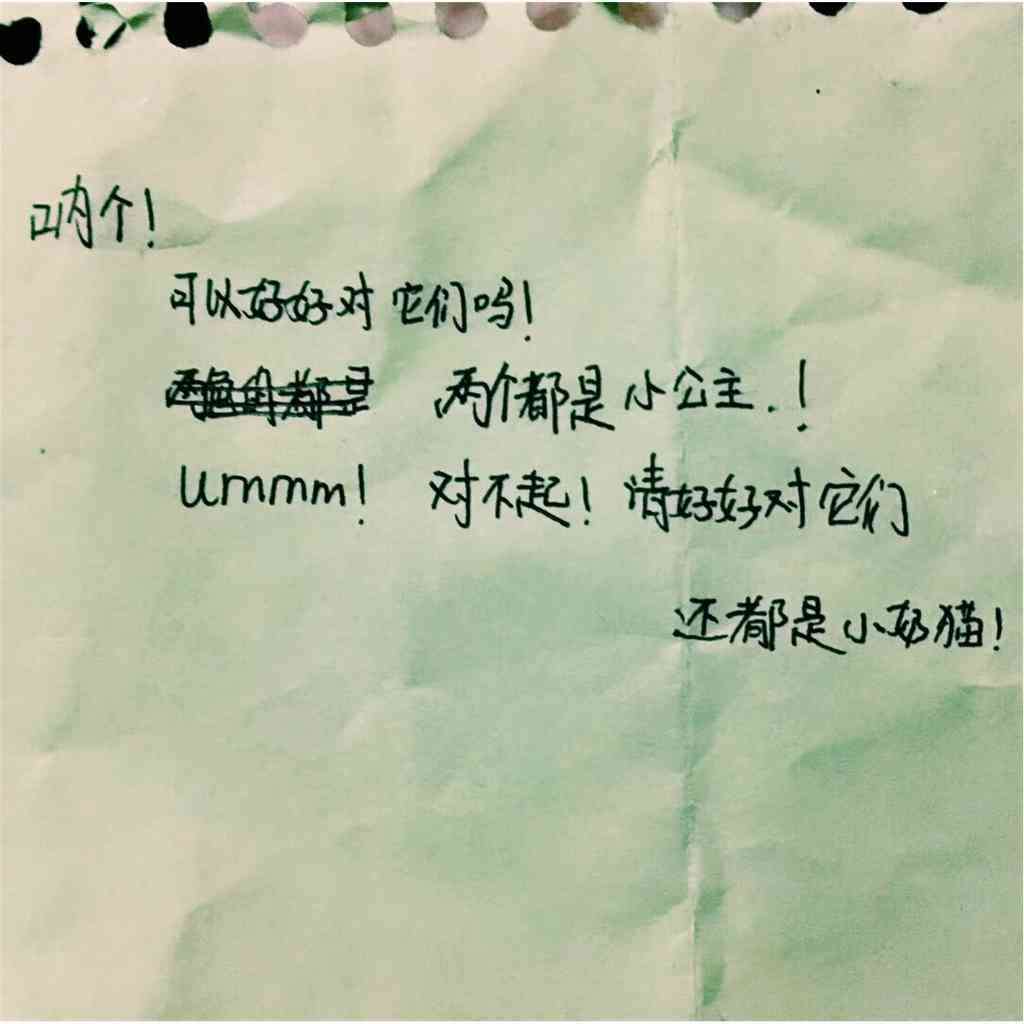 呐个！
可以好好对它们吗！
两个都是小公主.！
ummm！ 对不起！请好好对它们
还都是小奶猫！